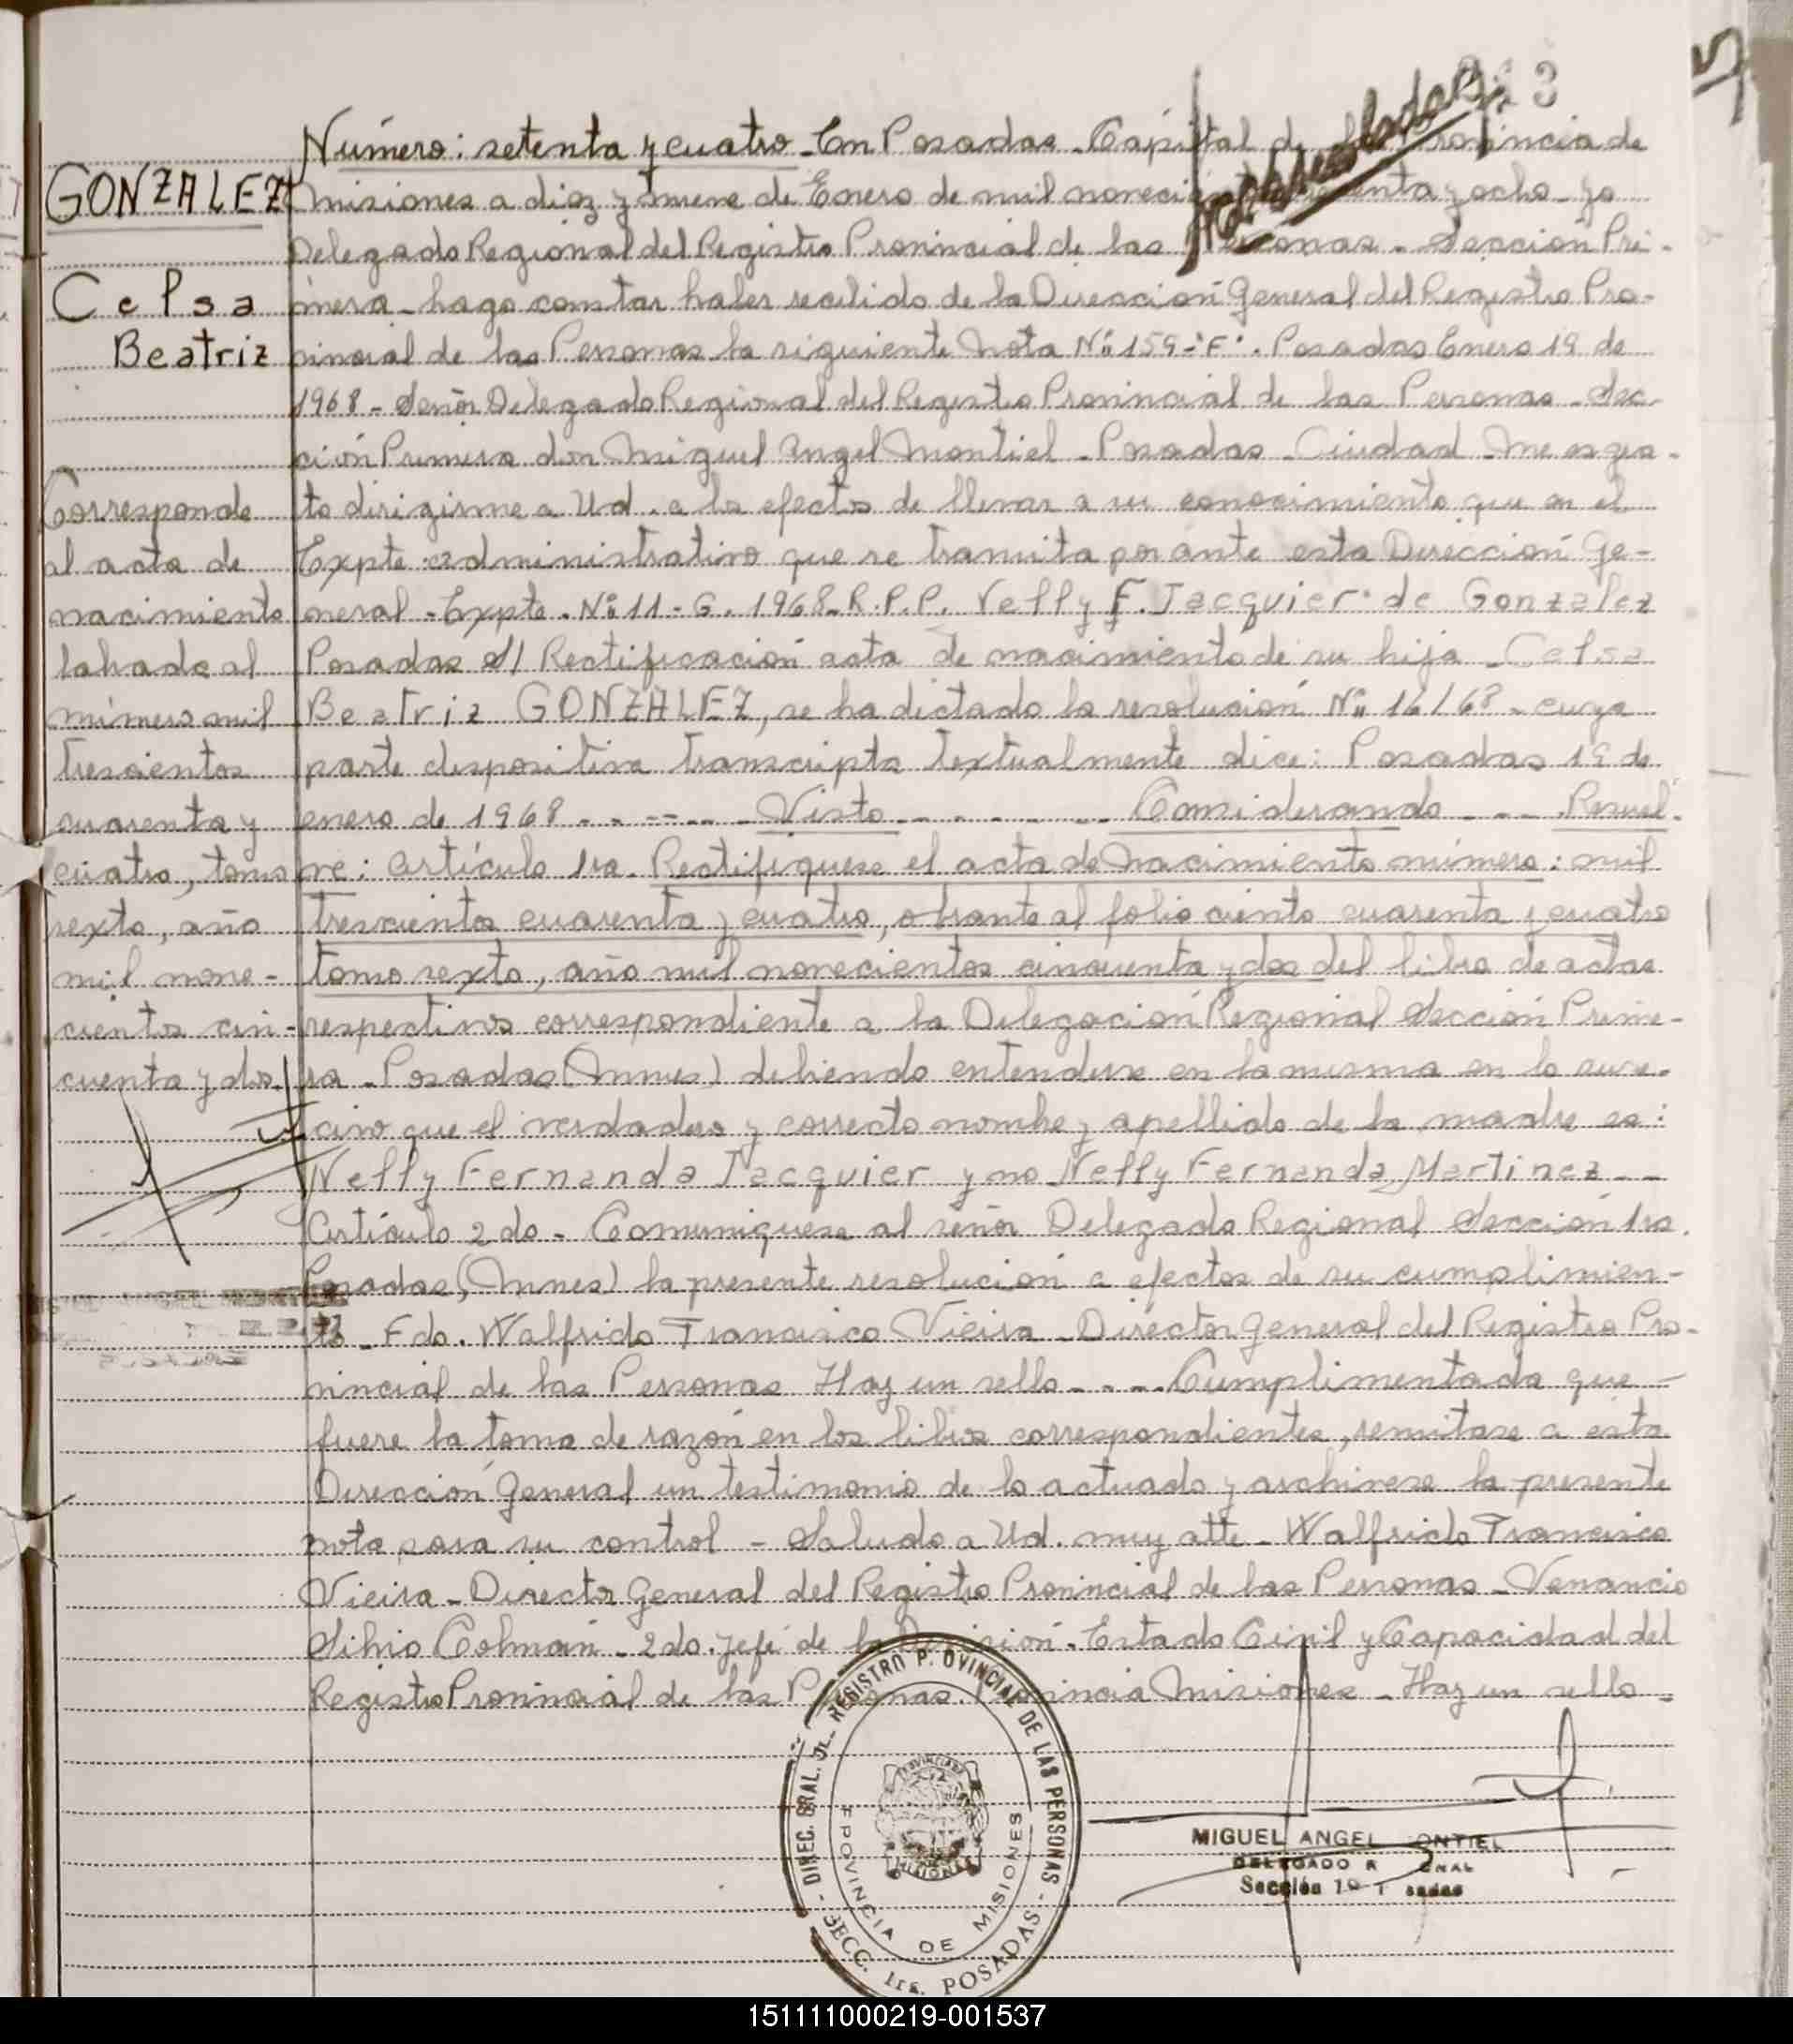 3
Número: setenta y cuatro - En Posadas - Capital de la Provincia de
GONZALEZ
Misiones a diez y nueve de Enero de mil novecientos sesenta y ocho - yo
Delegado Regional del Registro Provincial de las Personas - Sección Pri-
Celsa
mera - hago constar haber recibido de la Dirección General del Registro Pro-
Beatriz
vincial de las Personas la siguiente nota Nº 159-"F". Posadas Enero 19 de
1968 - Señor Delegado Regional del Registro Provincial de las Personas - Sec-
ción Primera don Miguel Angel Montiel - Posadas - Ciudad - Me es gra-
Corresponde
to dirigirme a Ud. a los efectos de llevar a su conocimiento que en el
al acta de
Expte administrativo que se tramita por ante esta Dirección Ge-
nacimiento
neral - Expte. Nº 11-G. 1968-R.P.P. Nelly F. Jacquier de Gonzalez
labrada al
Posadas S/ Rectificación acta de nacimiento de su hija - Celsa
número mil
Beatriz GONZALEZ, se ha dictado la resolución Nº 16/68 - cuya
trescientos
parte dispositiva transcripta textualmente dice: Posadas 19 de
cuarenta y
enero de 1968 - - - - - - Visto - - - - - - - - Considerando - - - - Resuel-
cuatro, tomo
ve: Artículo 1ro. Rectifíquese el acta de nacimiento número: mil
sexto, año
trescientos cuarenta y cuatro, obrante al folio ciento cuarenta y cuatro
mil nove-
tomo sexto, año mil novecientos cincuenta y dos del libro de actas
cientos cin-
respectivos correspondiente a la Delegación Regional Sección Prime-
cuenta y dos.
ra - Posadas (Mnes) debiendo entenderse en la misma en lo suce-
sivo que el verdadero y correcto nombre y apellido de la madre es:
Nelly Fernanda Jacquier y no Nelly Fernanda Martinez - -
Artículo 2do - Comuníquese al señor Delegado Regional Sección 1ra.
Posadas, (Mnes) la presente resolución a efectos de su cumplimien-
to - Fdo. Walfrido Francisco Vieira - Director General del Registro Pro-
vincial de las Personas Hay un sello - - - - Cumplimentada que
fuere la toma de razón en los libros correspondientes, remitase a esta
Dirección General un testimonio de lo actuado y archivese la presente
nota para su control - Saludo a Ud. muy atte - Walfrido Francisco
Vieira - Director General del Registro Provincial de las Personas - Venancio
Silvio Colmán - 2do. Jefe de la División - Estado Civil y Capacidad del
Registro Provincial de las Personas. Provincia Misiones - Hay un sello -
DIREC. GRAL. DEL REGISTRO PROVINCIAL DE LAS PERSONAS -
PROVINCIA DE MISIONES
SECC. 1ra. POSADAS
MIGUEL ANGEL MONTIEL
DELEGADO REGIONAL
Sección 1ª Posadas
151111000219-001537